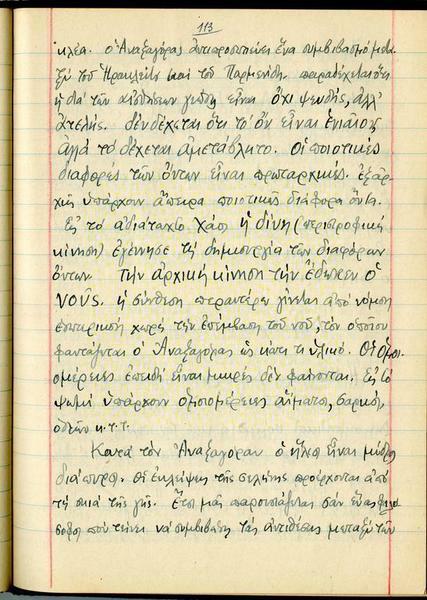 113
κλέα. ὁ Ἀναξαγόρας ἀντιπροσωπεύει ἕνα συμβιβασμό μετα-
ξύ τοῦ Ἡρακλείτου καί τοῦ Παρμενίδη. παραδέχεται ὅτι
ἡ διά τῶν αἰσθήσεων γνῶση εἶναι ὄχι ψευδής, ἀλλ'
ἀτελής. δέν δέχεται ὅτι τό ὄν εἶναι ἑνιαῖον,
ἀλλά τό δέχεται ἀμετάβλητο. Οἱ ποιοτικές
διαφορές τῶν ὄντων εἶναι πρωταρχικές. ἐξαρ-
χῆς ὑπάρχουν ἄπειρα ποιοτικῶς διάφορα ὄντα.
Εἰς τό ἀδιάτακτο χάος ἡ δίνη (περιστροφική
κίνηση) ἐγέννησε τή δημιουργία τῶν διαφόρων
ὄντων. Τήν ἀρχική κίνηση τήν ἔδωσεν ὁ
ΝΟΥΣ. ἡ σύνθεση περαιτέρω γίνεται ἀπό
χωρίς τήν ἐπέμβαση τοῦ νοῦ, τόν ὁποῖον
φαντάζεται ὁ Ἀναξαγόρας ὡς κάτι τι ὑλικό. Οἱ Ὁμοι-
ομέρειες ἐπειδή εἶναι μικρές δέν φαίνονται. Εἰς τό
ψωμί ὑπάρχουν ὁμοιομέρειες αἵματος, σαρκός,
ὀστῶν κ.τ.τ.
Κατά τόν Ἀναξαγόραν ὁ ἥλιος εἶναι μύδρος
διάπυρος. Οἱ ἐκλείψεις τῆς σελήνης προέρχονται ἀπό
τή σκιά τῆς γῆς. Ἔτσι μᾶς παρουσιάζεται σάν ἕνας φιλό-
σοφος πού τείνει νά συμβιβάσῃ τάς ἀντιθέσεις μεταξύ τῶν